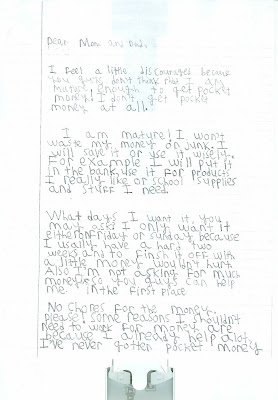 Dear Mom and Dad,
I feel a little discouraged because
you guys don't think that I am
mature enough to get pocket
money! I don't get pocket
money at all.
I am mature! I won't
waste my money on junk. I
will save it or use it wisely.
For example I will put it
in the bank, use it for products
I really like or school supplies
and stuff I need.
What days I want it, you
mask ask? I only want it
either Friday or Sunday because
I usally have a hard two
weeks and to finish it off with
a little money wouldn't hurt.
Also I'm not asking for much
money so you guys can help
me in the first place
No chores for the money,
please! some reasons I shouldn't
need to work for money are
because I already help alot,
I've never gotten pocket money